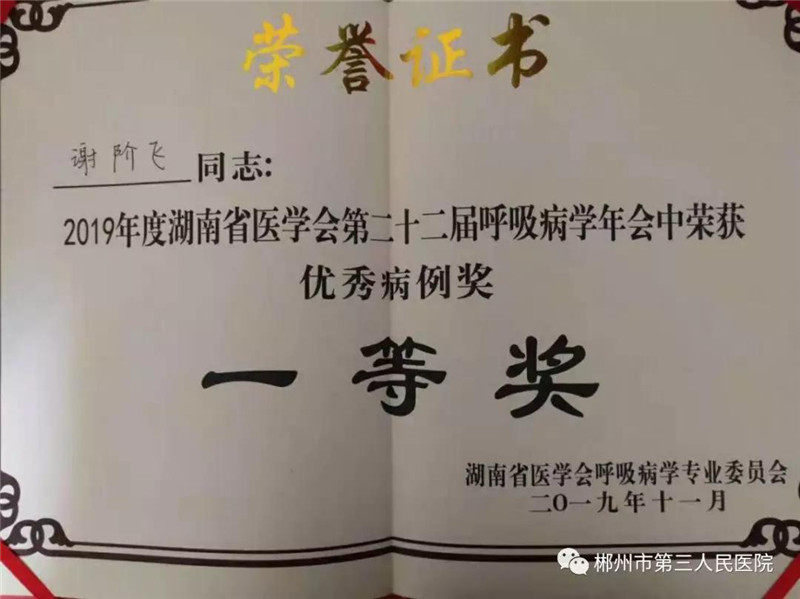 荣誉证书
谢阶飞 同志:
2019年度湖南省医学会第二十二届呼吸病学年会中荣获
优秀病例奖
一等奖
湖南省医学会呼吸病学专业委员会
二〇一九年十一月
郴州市第三人民医院